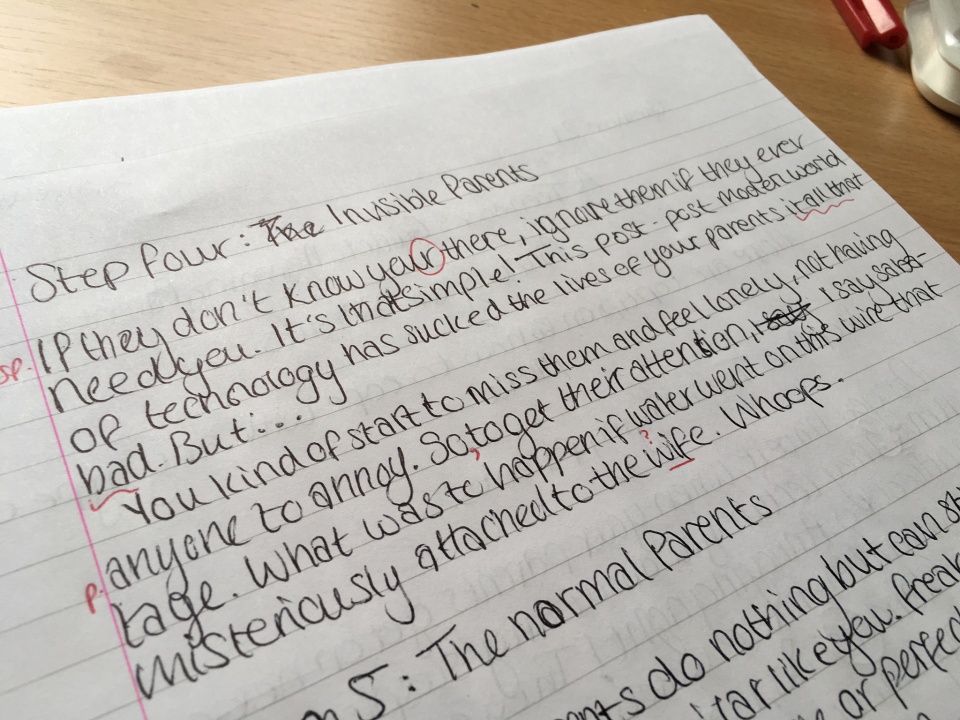 Step four: Invisible Parents
If they don't know your there, ignore them if they ever
sp. need you. It's that simple! This post-post moder world
of technology has sucked the lives of your parents it all that
bad. But...
You kind of start to miss them and feel lonely, not having
p. anyone to annoy. So, to get their attention, I say sabo-
tage. What was to happen if water went on this wire that
misteriously attached to the wife. Whoops.
5: The normal Parents
do nothing but can
like you.
or